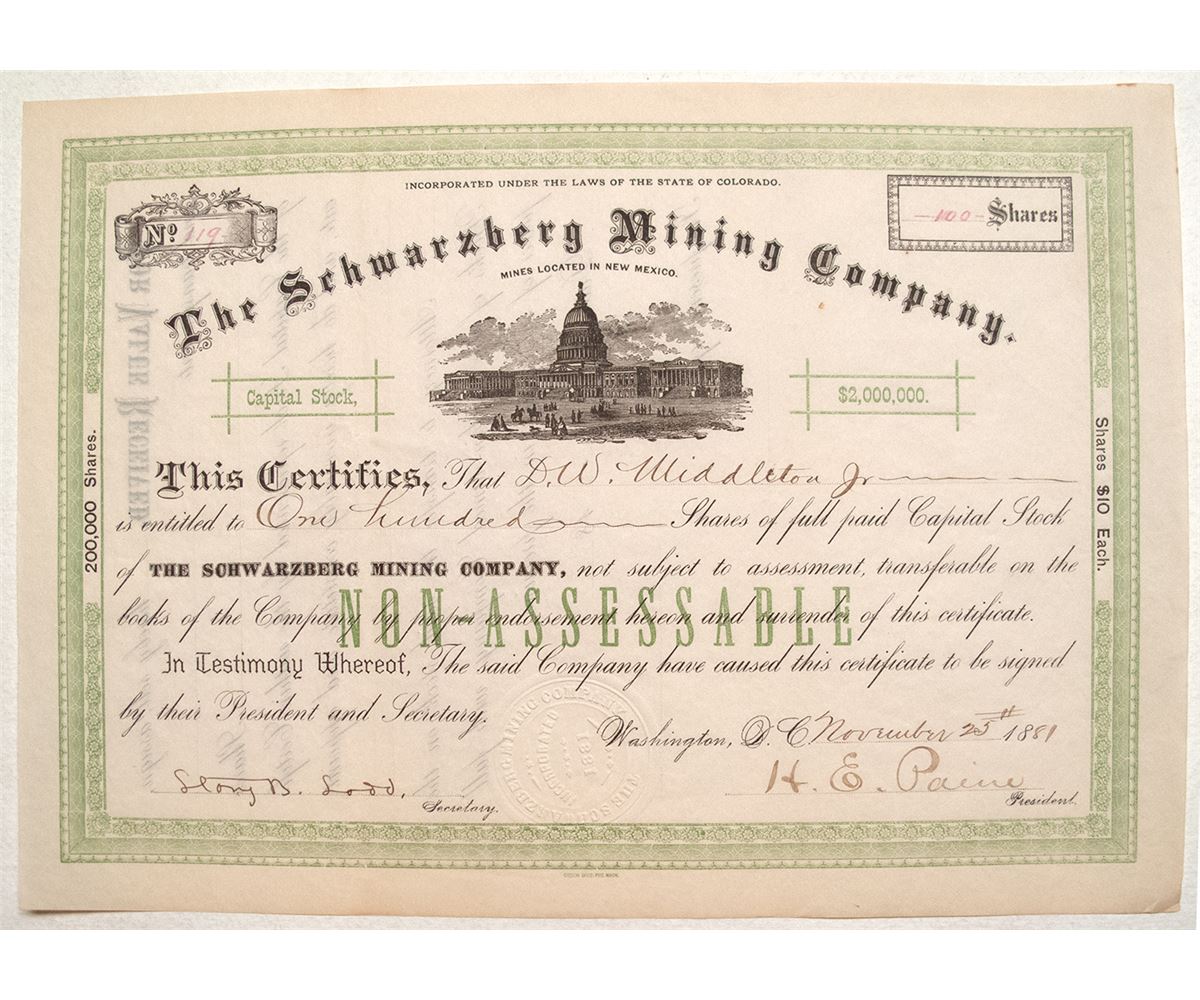 INCORPORATED UNDER THE LAWS OF THE STATE OF COLORADO.
Nº 119
100 Shares
The Schwarzberg Mining Company.
MINES LOCATED IN NEW MEXICO.
Capital Stock,
$2,000,000.
200,000 Shares.
Shares $10 Each.
FOR VALUE RECEIVED
This Certifies, That D. W. Middleton Jr
is entitled to One hundred Shares of full paid Capital Stock
of THE SCHWARZBERG MINING COMPANY, not subject to assessment, transferable on the
books of the Company by proper endorsement hereon and surrender of this certificate.
NON-ASSESSABLE
In Testimony Whereof, The said Company have caused this certificate to be signed
by their President and Secretary.
Washington, D. C. November 25th 1881
Story B. Ladd, Secretary.
H. E. Paine President.
THE SCHWARZBERG MINING COMPANY
INCORPORATED
1881